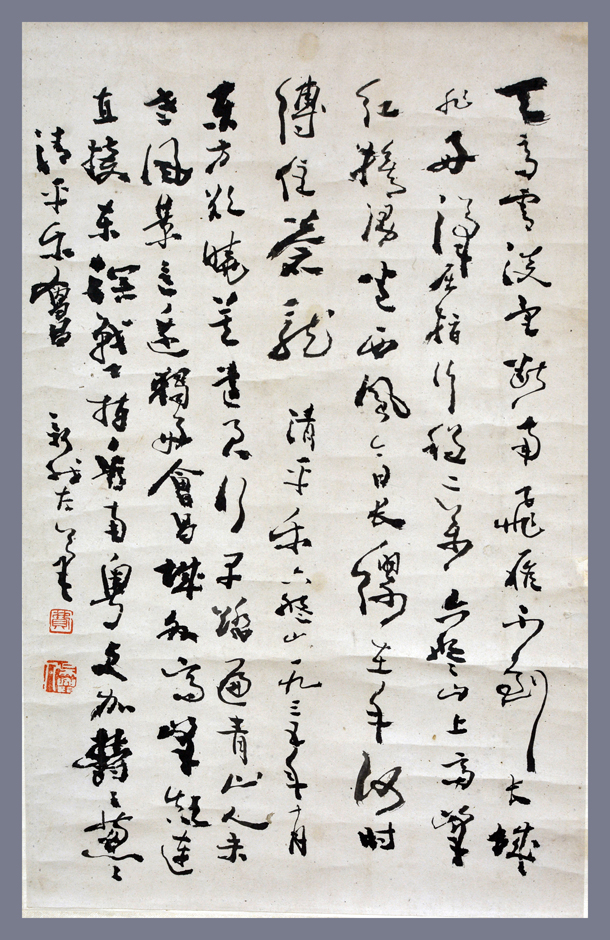 天高雲淡望斷南飛雁不到长城
非好漢屈指行程二萬六盤山上高峰
红旗漫卷西風今日长缨在手何时
縛住蒼龍 清平乐六盤山一九三五年十月
东方欲曉莫道君行早踏遍青山人未
老風景这边獨好會昌城外高峰颠连
直接东溟戰士指看南粤更加鬱々蔥々
清平乐會昌 新我左笔
費